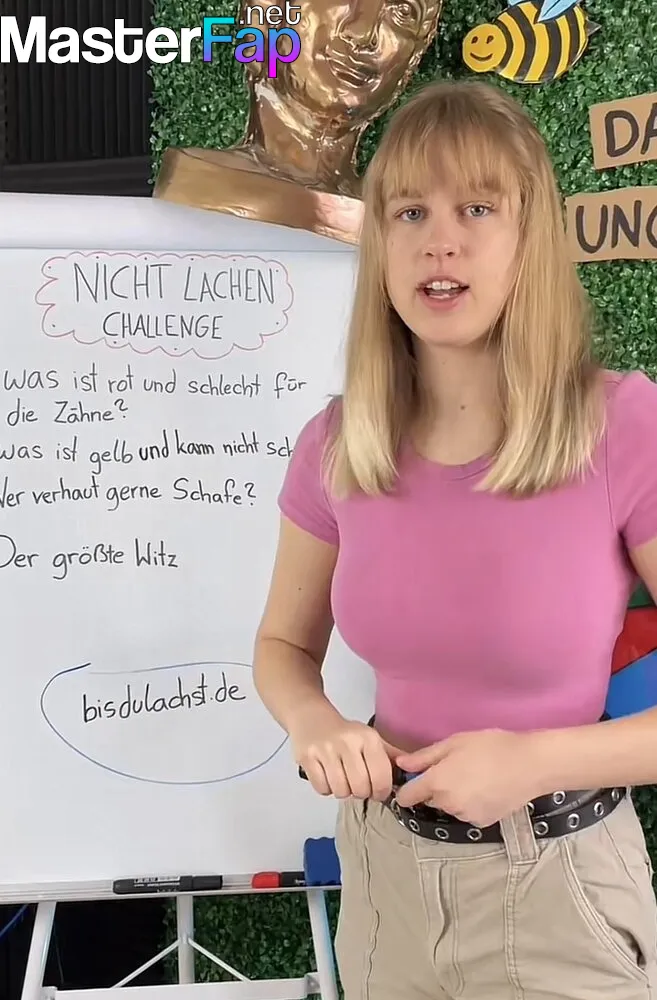 MasterFap.net
DA
UNG
NICHT LACHEN
CHALLENGE
was ist rot und schlecht für
die Zähne?
was ist gelb und kann nicht sch
Wer verhaut gerne Schafe?
Der größte Witz
bisdulachst.de